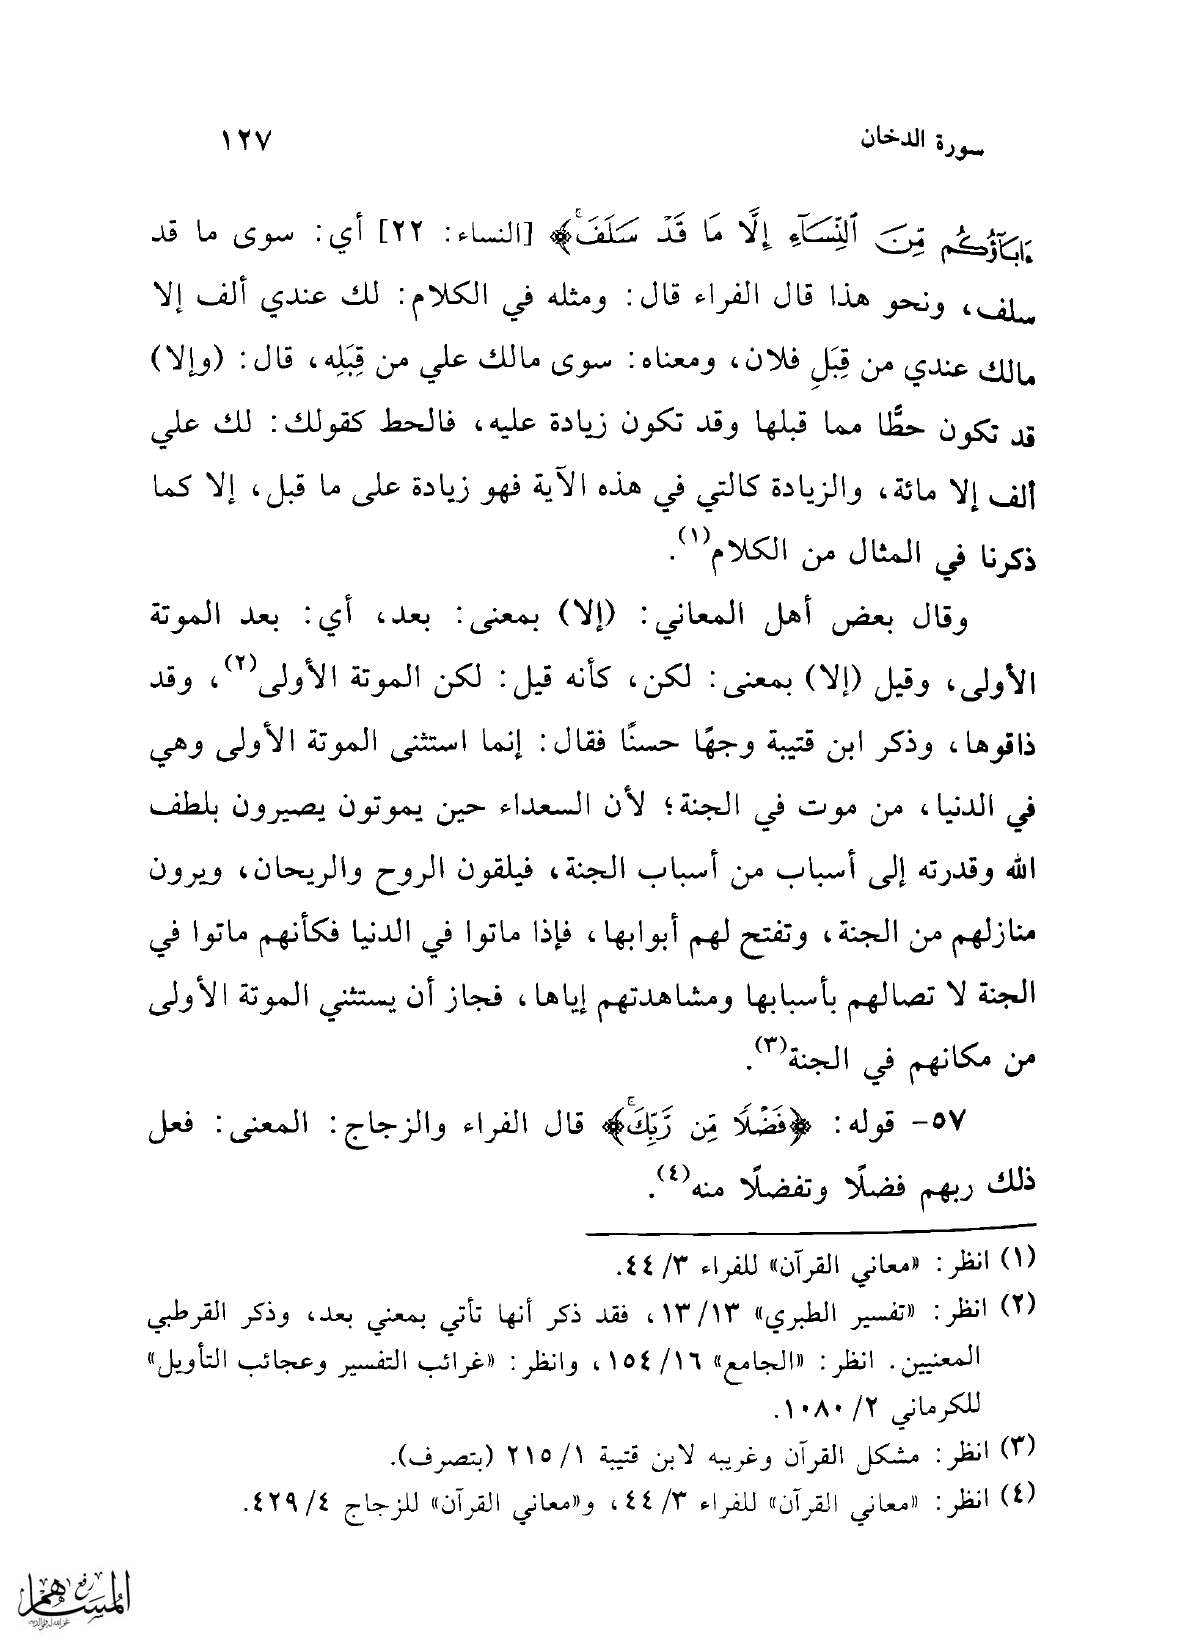 سورة الدخان ١٢٧
ءَابَآؤُكُم مِّنَ ٱلنِّسَآءِ إِلَّا مَا قَدۡ سَلَفَۚ﴾ [النساء: ٢٢] أي: سوى ما قد
سلف، ونحو هذا قال الفراء قال: ومثله في الكلام: لك عندي ألف إلا
مالك عندي من قِبَلِ فلان، ومعناه: سوى مالك علي من قِبَلِه، قال: (وإلا)
قد تكون حطًّا مما قبلها وقد تكون زيادة عليه، فالحط كقولك: لك علي
ألف إلا مائة، والزيادة كالتي في هذه الآية فهو زيادة على ما قبل، إلا كما
ذكرنا في المثال من الكلام(١).
وقال بعض أهل المعاني: (إلا) بمعنى: بعد، أي: بعد الموتة
الأولى، وقيل (إلا) بمعنى: لكن، كأنه قيل: لكن الموتة الأولى(٢)، وقد
ذاقوها، وذكر ابن قتيبة وجهًا حسنًا فقال: إنما استثنى الموتة الأولى وهي
في الدنيا، من موت في الجنة؛ لأن السعداء حين يموتون يصيرون بلطف
الله وقدرته إلى أسباب من أسباب الجنة، فيلقون الروح والريحان، ويرون
منازلهم من الجنة، وتفتح لهم أبوابها، فإذا ماتوا في الدنيا فكأنهم ماتوا في
الجنة لا تصالهم بأسبابها ومشاهدتهم إياها، فجاز أن يستثني الموتة الأولى
من مكانهم في الجنة(٣).
٥٧- قوله: ﴿فَضۡلٗا مِّن رَّبِّكَۚ﴾ قال الفراء والزجاج: المعنى: فعل
ذلك ربهم فضلًا وتفضلًا منه(٤).
(١) انظر: «معاني القرآن» للفراء ٣/ ٤٤.
(٢) انظر: «تفسير الطبري» ١٣/١٣، فقد ذكر أنها تأتي بمعني بعد، وذكر القرطبي
المعنيين. انظر: «الجامع» ١٦/ ١٥٤، وانظر: «غرائب التفسير وعجائب التأويل»
للكرماني ٢/ ١٠٨٠.
(٣) انظر: مشكل القرآن وغريبه لابن قتيبة ١/ ٢١٥ (بتصرف).
(٤) انظر: «معاني القرآن» للفراء ٣/ ٤٤، و«معاني القرآن» للزجاج ٤/ ٤٢٩.